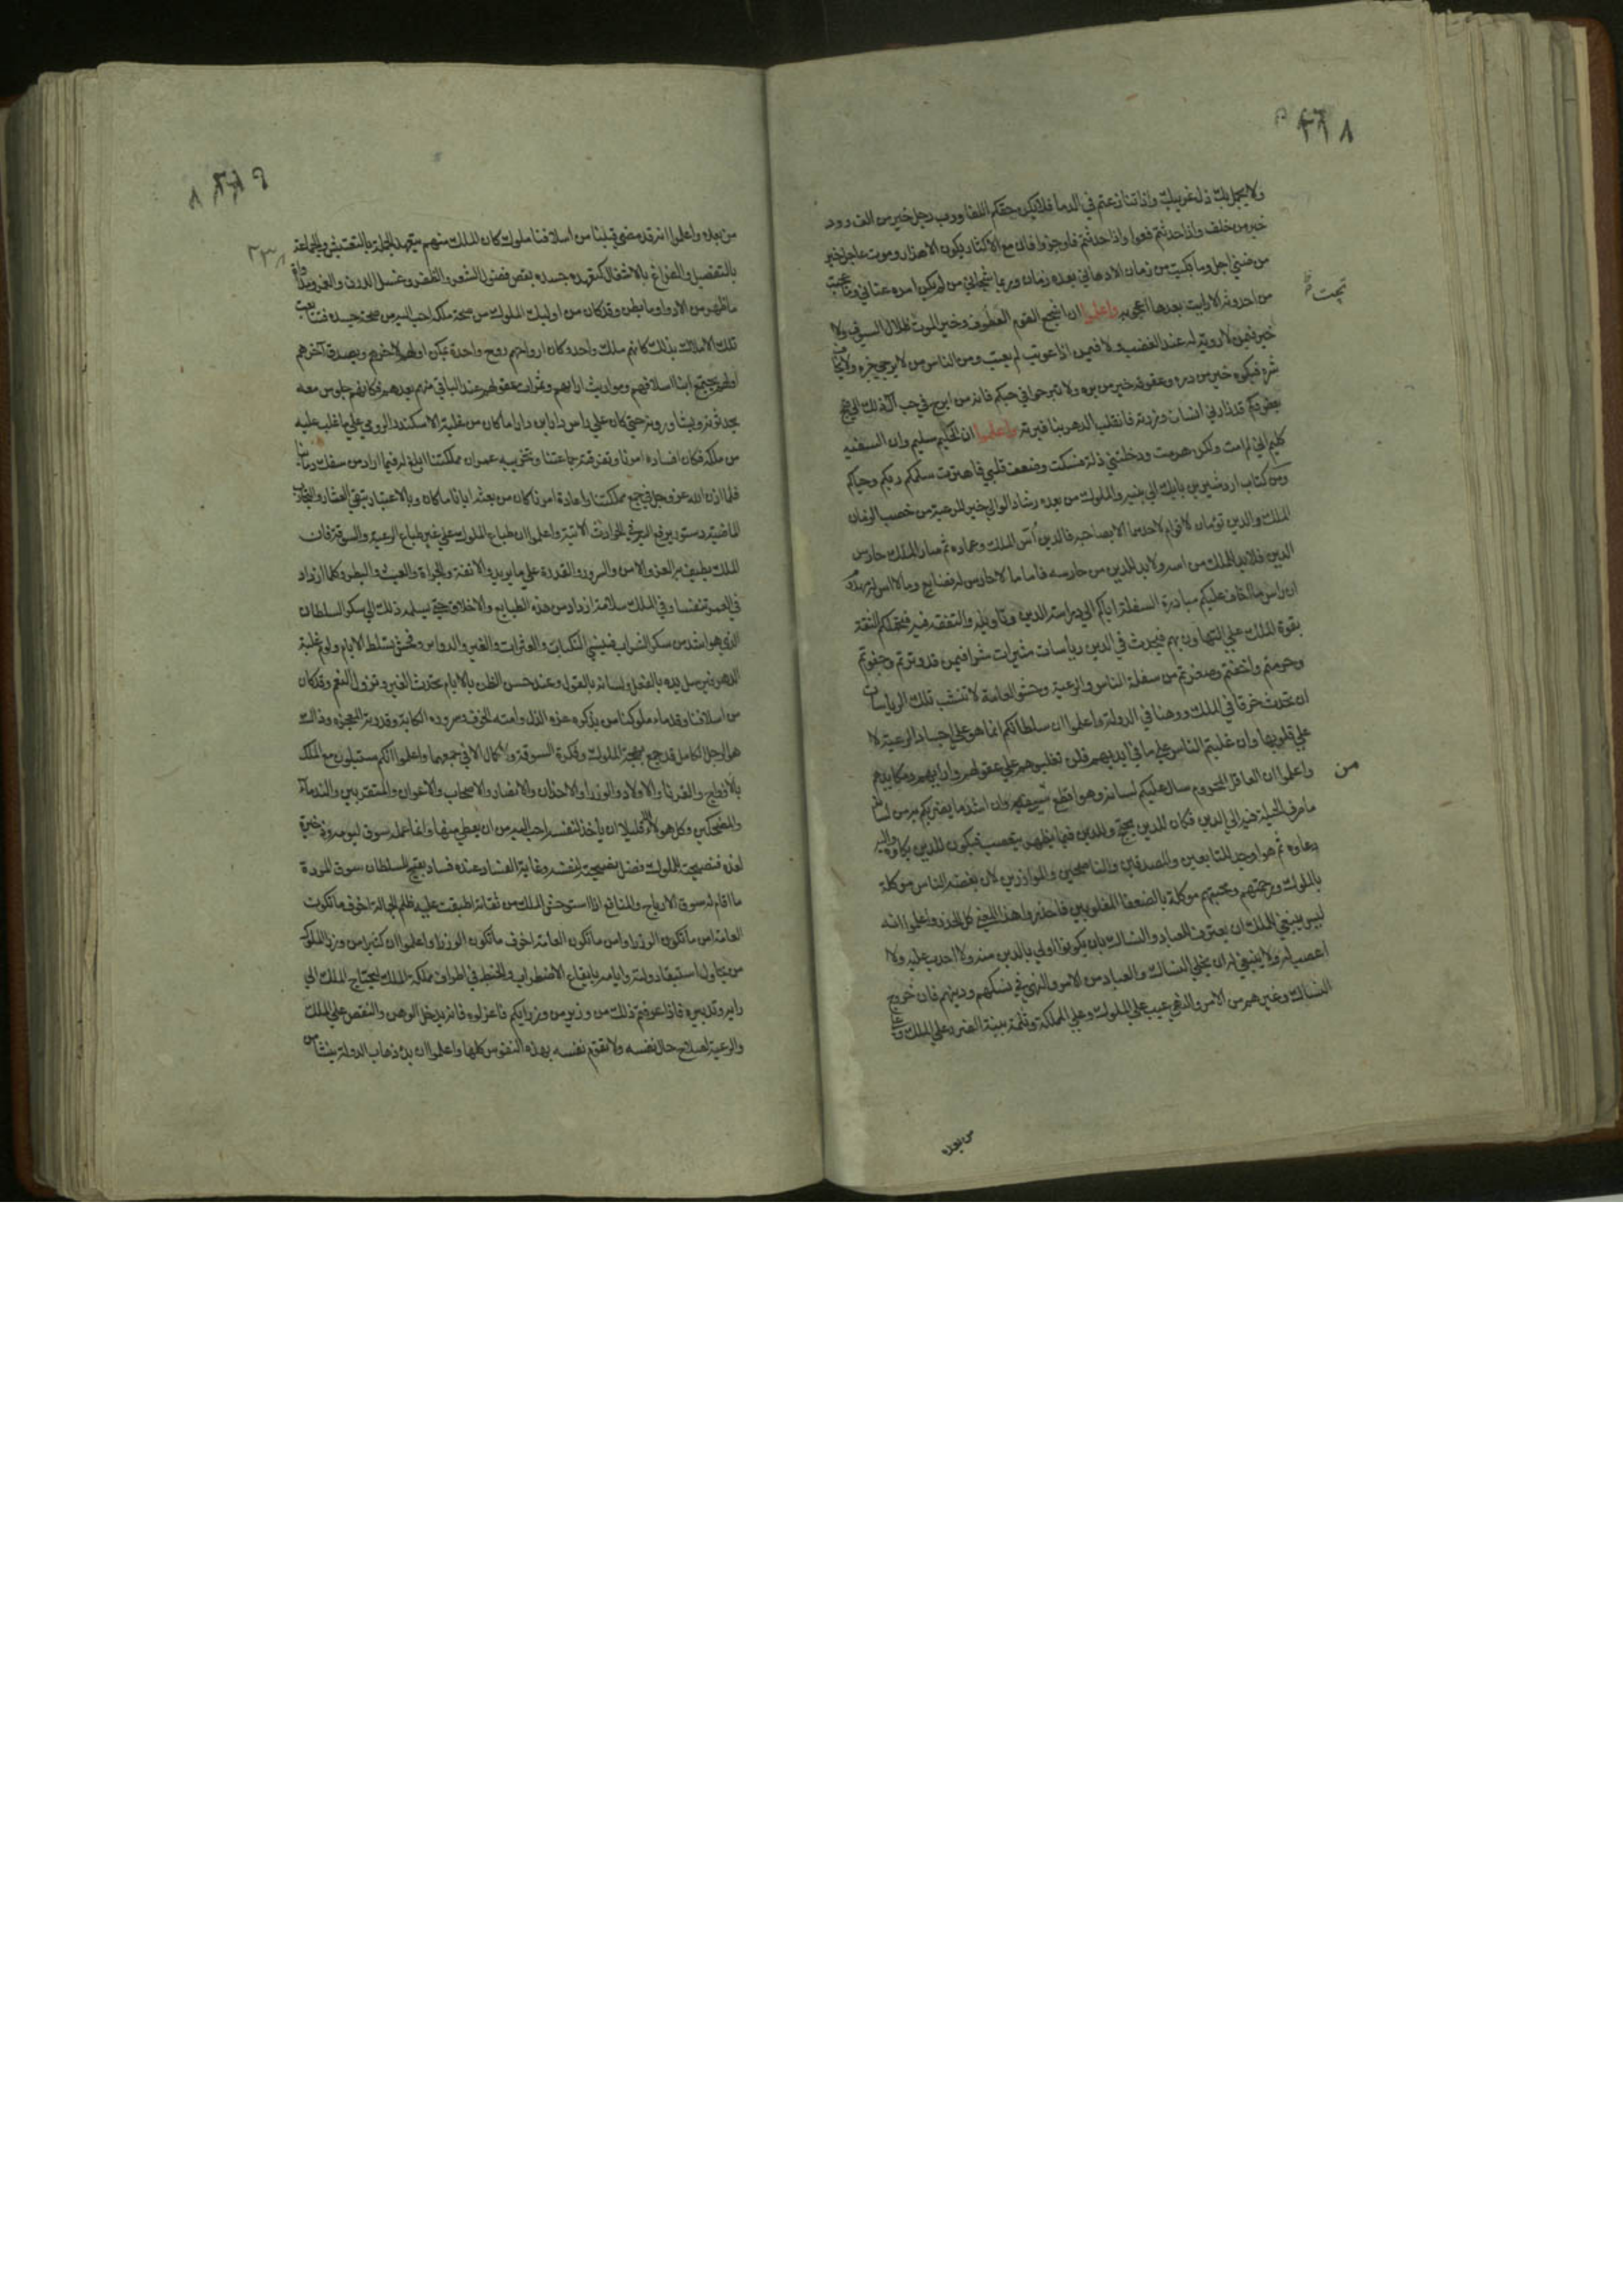 ٢١٨
ولا يجمل بك ذلة غريبك واذا تنازعتم في الدما فلا يكن حقكم اللقا ورب رجل خير من الف ودود
خير من خلف واذا حدثتم فعوا واذا حدثتم فاوجزوا فان مع الاكثار يكون الاهذار وموت عاجل خير
من ضني اجل وما بكيت من زمان الا دهاني بعده زمان وربما شجاني من لم يكن امره عناني وما عجبت
من احدوثة الا رايت بعدها اعجوبة واعلموا ان اشجع القوم العطوف وخير الموت ظلال السيوف ولا
خير فيمن لا روية له عند الغضب ولا فيمن اذا عوتب لم يعتب ومن الناس من لا يرجي خيره ولا يخاف
شره فبكوه خير من دره وعقوقه خير من بره ولا تبرحوا في حبكم فانه من ابرح في حب آل ذلك الي قبح
بعض وكم قد زارني انسان وزرته فانقلب الدهر بنا فبرته واعلموا ان الحكيم سليم وان السفيه
كليم اني لم امت ولكن هرمت ودخلتني ذلة فسكت وضعف قلبي فاهترت سلمكم ربكم وحياكم
ومن كتاب اردشير بن بابك الي بنيه والملوك من بعده رشاد الوالي خير للرعية من خصب الزمان
الملك والدين توءمان لا قوام لاحدهما الا بصاحبه فالدين اس الملك وعماده ثم صار الملك حارس
الدين فلا بد للملك من اسه ولا بد للدين من حارسه فاما ما لا حارس له فضايع وما لا اس له فمهدوم
ان راس ما اخاف عليكم مبادرة السفلة اياكم الي دراسة الدين وتاويله والتفقه فيه فتحملكم الثقة
بقوة الملك علي التهاون بهم فيحدث في الدين رياسات منتشرات سرا فيمن قد وترتم وجفوتم
وحرمتم واخفتم وصغرتم من سفلة الناس والرعية وحشو العامة لا تنشب تلك الرياسات
ان تحدث خرقا في الملك ووهنا في الدولة واعلموا ان سلطانكم انما هو علي اجساد الرعية لا
علي قلوبها وان غلبتم الناس علي ما في ايديهم فلن تغلبوهم علي عقولهم وارايهم ومكايدهم
واعلموا ان العاقل المحروم سال عليكم لسانه وهو اقطع سيفيه وان اشد ما يضربكم به من لسانه
ما صرف الحيلة فيه الي الدين فكان للدين يحتج وللدين فيما يظهر يتعصب فيكون للدين بكاوه واليه
دعاوه ثم هو اوجد للتابعين والمصدقين والناصحين والموازرين لان بغضة الناس موكلة
بالملوك ورحمتهم ومحبتهم موكلة بالضعفا المغلوبين فاحذروا هذا المعني كل الحذر واعلموا انه
ليس ينبغي للملك ان يعترف للعباد والنساك بان يكونوا اولي بالدين منه ولا احدب عليه ولا
اغضب له ولا ينبغي له ان يخلي النساك والعباد من الامر والنهي في نسكهم ودينهم فان خروج
النساك وغيرهم من الامر والنهي عيب علي الملوك وعلي المملكة وثلمة بينة الضرر علي الملك وعلي
من
من بعده
٢١٩
٢٣٨
من بعده واعلموا انه قد مضي قبلنا من اسلافنا ملوك كان الملك منهم يتعهد الجملة بالتفتيش والجماعة
بالتفصيل والفراغ بالاشغال كتعهده جسده بقص فضول الشعر والظفر وغسل الدرن والغمر ومداواة
ما ظهر من الادوا وما بطن وقد كان من اوليك الملوك من صحة ملكه احب اليه من صحة جسده فتتابعت
تلك الاملاك بذلك كانهم ملك واحد وكان ارواحهم روح واحدة يمكن اولهم لاخرهم ويصدق آخرهم
اولهم يجتمع ابنا اسلافهم ومواريث ارايهم وثمرات عقولهم عند الباقي منهم بعدهم فكانهم جلوس معه
يحدثونه ويشاورونه حتي كان علي راس دارا بن دارا ما كان من غلبة الاسكندر الرومي علي ما غلب عليه
من ملكه فكان افساده امرنا وتفرقته جماعتنا وتخريبه عمران مملكتنا ابلغ له فيما اراد من سفك دماينا
فلما اذن الله عز وجل في جمع مملكتنا واعادة امرنا كان من بعثه ايانا ما كان وبالاعتبار يتقي العثار والتجارب
الماضية دستور يرجع اليه في الحوادث الاتية واعلموا ان طباع الملوك علي غير طباع الرعية والسوقة فان
الملك يطيف به العز والامن والسرور والقدرة علي ما يريد والانفة والجراة والعبث والبطر وكلما ازداد
في العمر تنفسا وفي الملك سلامة ازداد من هذه الطبايع والاخلاق حتي يسلمه ذلك الي سكر السلطان
الذي هو اشد من سكر الشراب فينسي النكبات والعثرات والغير والدواير وفحش تسلط الايام ولوم غلبة
الدهر فيرسل يده بالفعل ولسانه بالقول وعند حسن الظن بالايام تحدث الغير وتزول النعم وقد كان
من اسلافنا وقدماء ملوكنا من يذكره عزه الذل وامنه الخوف وسروره الكابة وقدرته المعجزة وذلك
هو الرجل الكامل قد جمع بهجة الملوك وفكرة السوقة ولا كمال الا في جمعهما واعلموا انكم ستبلون مع الملك
بالازواج والقرناء والاولاد والوزراء والاخدان والانصار والاصحاب والاعوان والمتقربين والندماء
والمضحكين وكل هولاء الا قليلا ان ياخذ لنفسه احب اليه من ان يعطي منها وانما عمله سوق ليومه وذخيرة
لغده فنصيحته للملوك فضل نصيحته لنفسه وغاية الفساد عنده فساد يفتح للسلطان سوق المودة
ما اقام له سوق الارباح والمنافع اذا استوحش الملك من ثقاته اطبقت عليه ظلم الجهالة اخوف ما تكون
العامة امن ما تكون الوزرا وامن ما تكون العامة اخوف ما تكون الوزرا واعلموا ان كثيرا من وزرا الملوك
من يحاول استبقاء دولته وايامه بايقاع الاضطراب والخبط في اطراف مملكة الملك ليحتاج الملك الي
رايه وتدبيره فاذا عرفتم ذلك من وزير من وزرايكم فاعزلوه فانه يدخل الوهن والنقص علي الملك
والرعية لصلاح حال نفسه ولا تقوم نفسه بهذه النفوس كلها واعلموا ان بدء ذهاب الدولة ينشا من